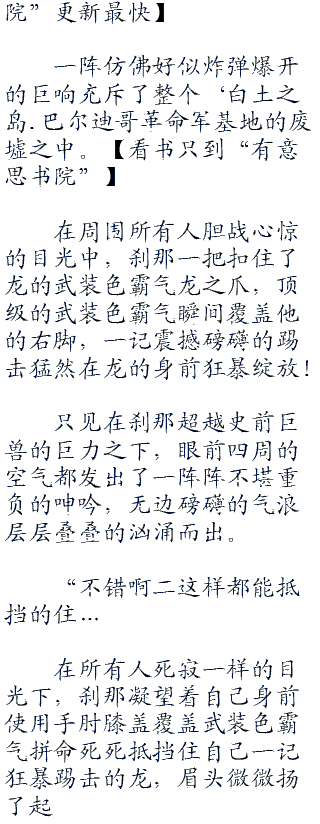 院”更新最快】
一阵仿佛好似炸弹爆开
的巨响充斥了整个‘白土之
岛.巴尔迪哥革命军基地的废
墟之中。【看书只到“有意
思书院”】
在周围所有人胆战心惊
的目光中，刹那一把扣住了
龙的武装色霸气龙之爪，顶
级的武装色霸气瞬间覆盖他
的右脚，一记震撼磅礴的踢
击猛然在龙的身前狂暴绽放!
只见在刹那超越史前巨
兽的巨力之下，眼前四周的
空气都发出了一阵阵不堪重
负的呻吟，无边磅礴的气浪
层层叠叠的汹涌而出。
“不错啊二这样都能抵
挡的住...
在所有人死寂一样的目
光下，刹那凝望着自己身前
使用手肘膝盖覆盖武装色霸
气拼命死死抵挡住自己一记
狂暴踢击的龙，眉头微微扬
了起